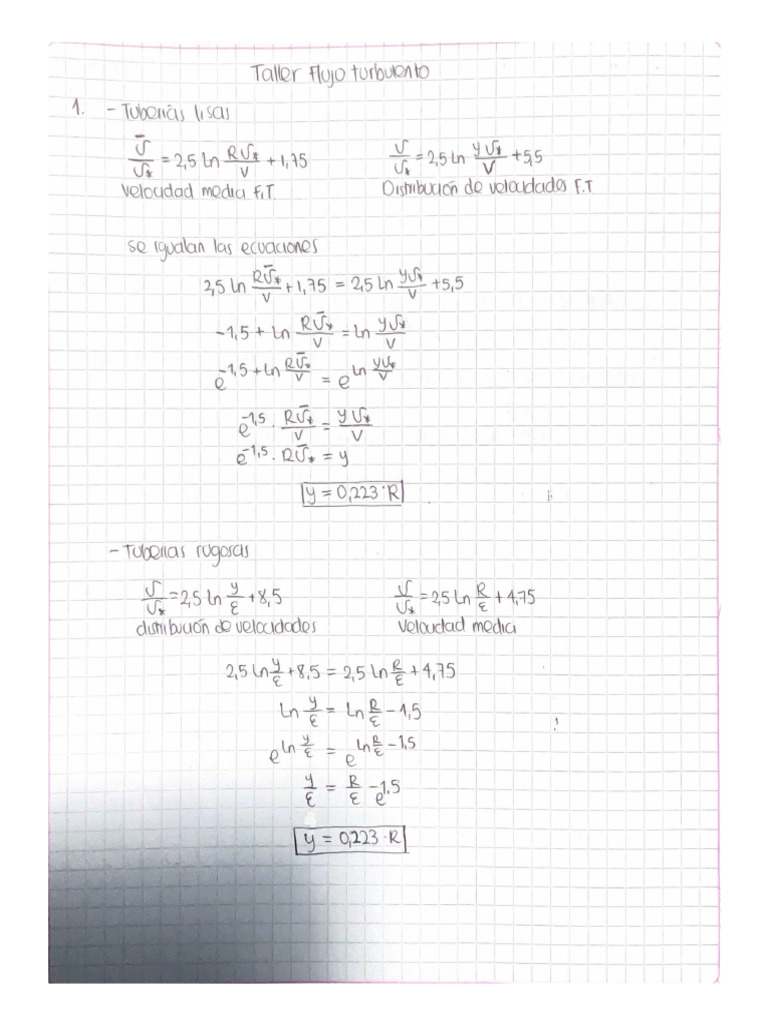 Taller flujo turbulento
1. - Tuberías lisas
V̄/V* = 2,5 ln RV*/ν + 1,75 V/V* = 2,5 ln yV*/ν + 5,5
Velocidad media F.T. Distribución de velocidades F.T
se igualan las ecuaciones
2,5 ln RV̄*/ν + 1,75 = 2,5 ln yV*/ν + 5,5
-1,5 + ln RV̄*/ν = ln yV*/ν
e^(-1,5 + ln RV̄*/ν) = e^(ln yV*/ν)
e^-1,5 · RV̄*/ν = yV*/ν
e^-1,5 · RV̄* = y
y = 0,223·R
- Tuberias rugosas
V/V* = 2,5 ln y/ε + 8,5 V/V* = 2,5 ln R/ε + 4,75
distribución de velocidades Velocidad media
2,5 ln y/ε + 8,5 = 2,5 ln R/ε + 4,75
ln y/ε = ln R/ε - 1,5
e^(ln y/ε) = e^(ln R/ε - 1,5)
y/ε = R/ε e^-1.5
y = 0,223·R